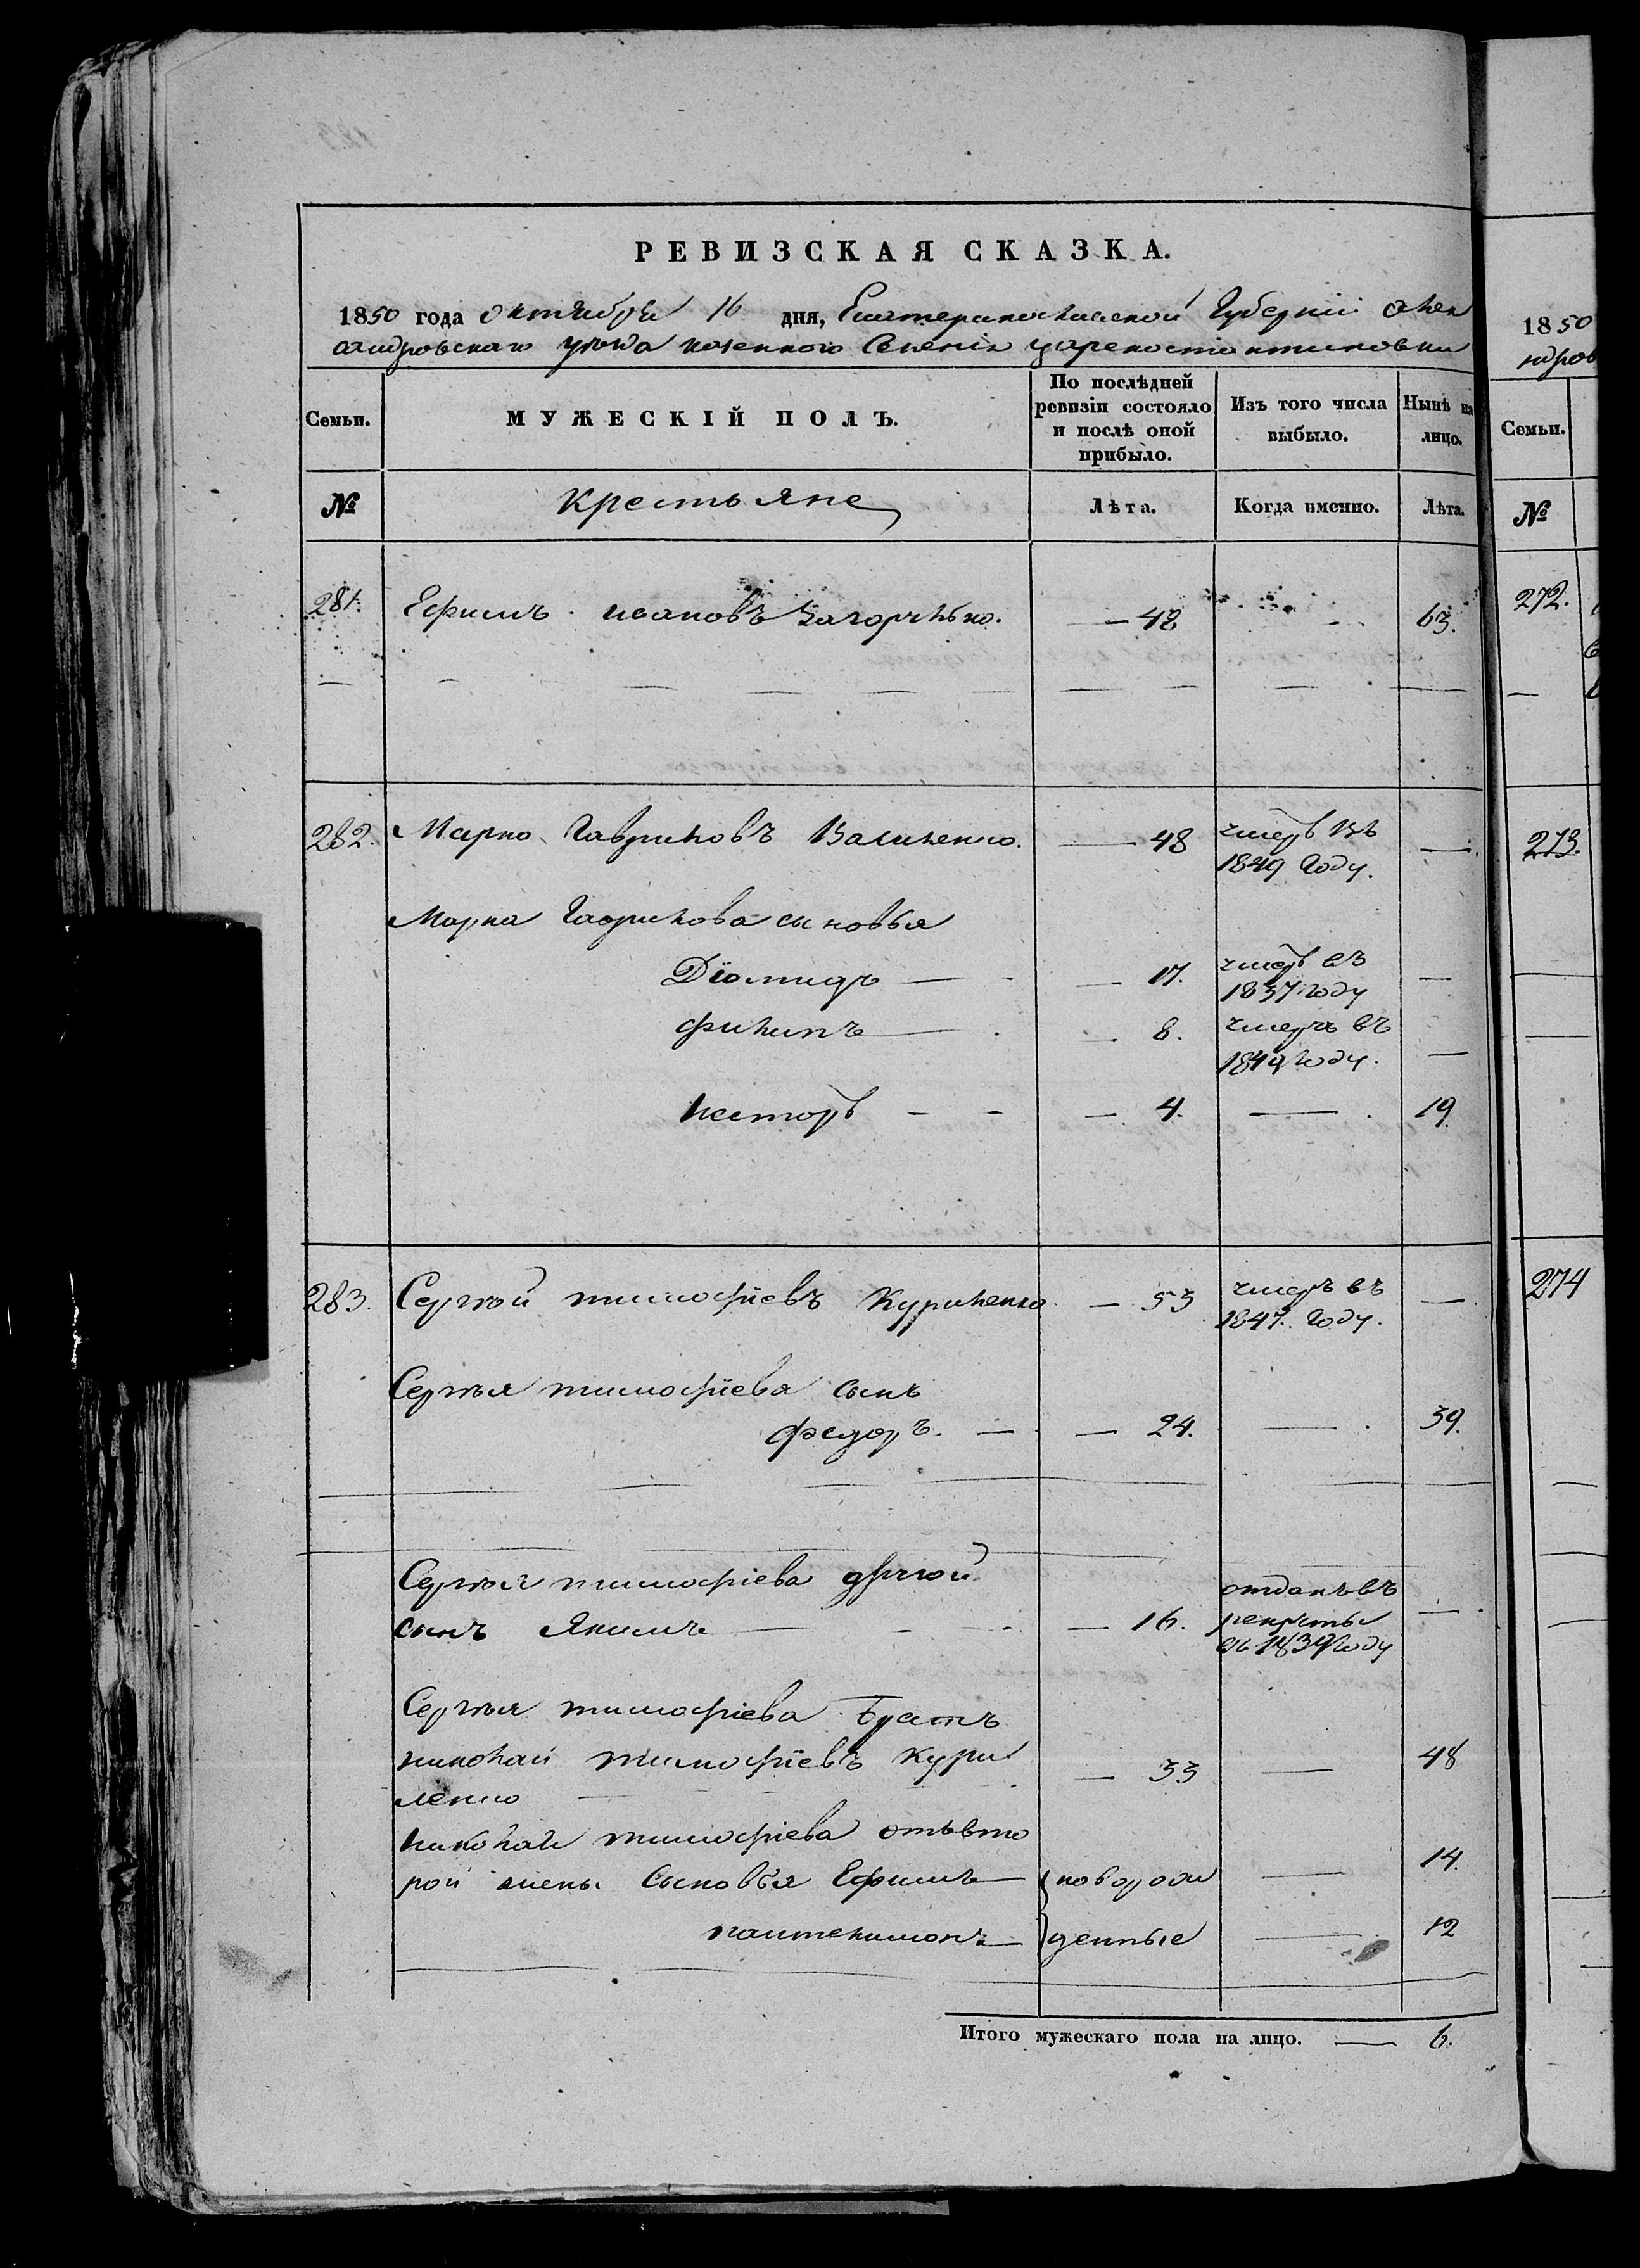 РЕВИЗСКАЯ СКАЗКА.
1850 года октября 16 дня, Екатеринославской Губернiи Алек
сандровскаго уѣзда казенного Селенiя Царе константиновки
Семьи. МУЖЕСКІЙ ПОЛЪ. По послѣдней ревизіи состояло и послѣ оной прибыло. Изъ того числа выбыло. Нынѣ на лицо.
№ Крестьяне Лѣта. Когда именно. Лѣта.
281. Ефимъ ивановъ — 48 — 63.
282. Марко Гавриловъ Василенко. — 48 умеръ въ 1849 Году. —
Марка Гаврилова сыновья
Діомидъ — — 17. умеръ въ 1837 году —
филипъ — — 8. умеръ въ 1849 Году. —
несторъ — — — 4. — 19.
283. Сергѣй тимофѣевъ Куриленко — 53 умеръ въ 1847. Году. —
Сергѣя тимофіева сынъ
федоръ. — — 24. — 39.
Сергѣя тимофіева другой
сынъ Якимъ — — 16. отданъ въ рекруты въ 1839 Году —
Сергѣя тимофіева Братъ
николай тимофіевъ Кури
ленко — — 33 — 48
николая тимофіева отъ вто
рой жены Сыновья Ефимъ — новорож — 14.
пантелимонъ — денные — 12
Итого мужескаго пола на лицо. — 6.
1850
ндров
Семьи.
№
272.
273.
274